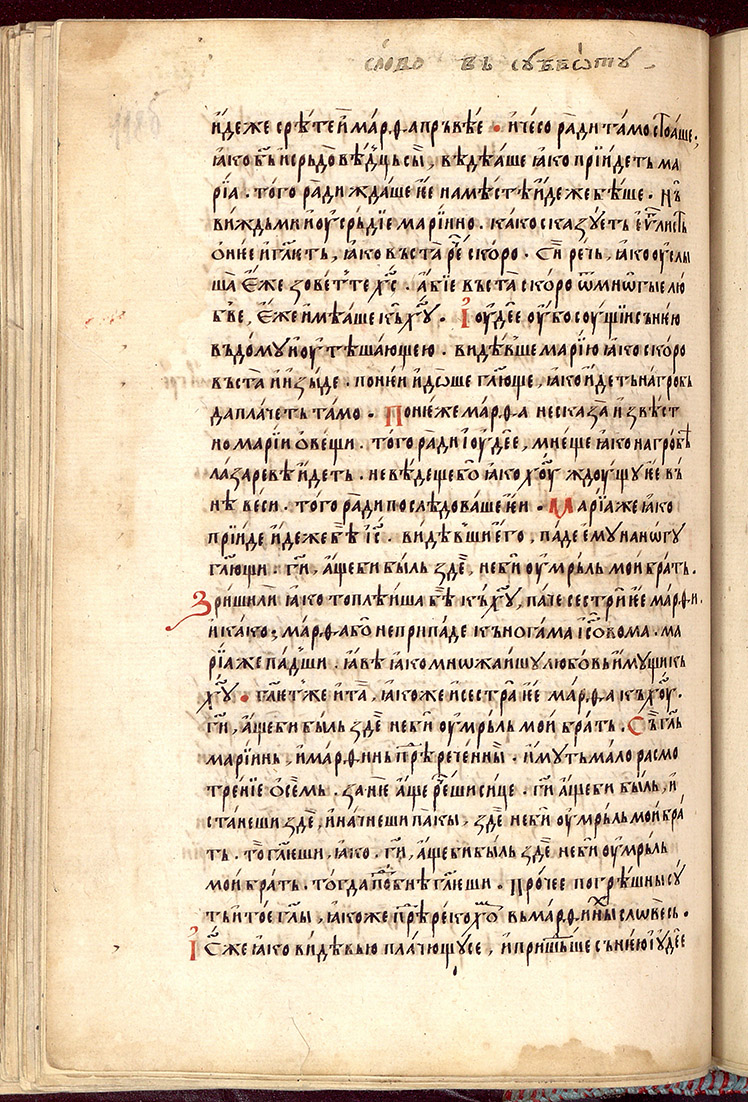 сло́во въ сꙋббѡ́тꙋ
и҆́деже срѣ́те й мар.ѳ.а пръвѣ́е • и҆ чесо̀ ра́ди та́мо стоа́ше;
ꙗ҆́ко бъ҃ и҆ сръдовѣ́дць сы̀, вѣ́дѣаше ꙗ҆́ко прїи́деть ма
рїа . того̀ ра́ди жда́ше и҆ѐ на мѣ́стѣ и҆́деже бѣ́ше . нъ̀
ви́ждь ми и҆ оу҆сръ́дїе марїи́но . ка́ко сказꙋ́еть еѵ҃листь
ѡ҆ не́и и҆ гл҃еть, ꙗ҆́ко въста̀ рⷱ҇е ско́ро . Сїи ре́чь, ꙗ҆́ко оу҆слы
ша̀ є҆́же зове́ть те хс҃ . а҆́бїе въста̀ ско́ро ѿ мнѡ́гые лю
бве, є҆́же и҆мѣ́аше къ хꙋ҃ . І҆оуде́е оу҆́бо соу́щїи съ не́ю
въ до́мꙋ и҆ оу҆тѣша́юще ю̀ . ви́дѣвше марі́ю ꙗ҆́ко ско́ро
въста̀ и҆ и҆зы́де . по не́и и҆до́ше гл҃юще, ꙗ҆́ко и҆́деть на гро́бь
да пла́четь та́мо . Поне́же мар.ѳ.а не сказа̀ и҆звѣ́ст
но марїи ѡ҆ ве́щи . того̀ ра́ди і҆оуде́е, мне́ще ꙗ҆́ко на гро́бь
лазаревѣ и҆́деть . не вѣ́деще бо̀ ꙗ҆́ко хоу҃ ждоу́щꙋ и҆ѐ въ
нѣ ве́си . того̀ ра́ди послѣ́доваше е҆и . Марїа же ꙗ҆́ко
прїи́де и҆́деже бѣ̀ і҆с҃ . ви́дѣвши е҆го̀, па́де е҆мꙋ̀ на но́гꙋ
гл҃ющи . гн҃и, а҆́ще би бы́ль здѐ, не бѝ оу҆мръ́ль мо́и бра́ть .
Зриши ли ꙗ҆́ко топлѣ́иша бѣ̀ къ хꙋ҃, па́че сестрѝ и҆ѐ мар.ѳ.и.
и҆ ка́ко; мар.ѳ.а бо̀ не припа́де къ нога́ма і҆с҃овома . ма
рїа же па́дши . ꙗ҆́вѣ ꙗ҆́ко мно́жаишꙋ любо́вь и҆мꙋ́щи къ
хꙋ҃ • гл҃еть же и҆ та̀, ꙗ҆́коже и҆ сестра̀ и҆ѐ мар.ѳ.а къ хоу҃ .
гн҃и, а҆́ще би бы́ль здѐ не бѝ оу҆мръ́ль мо́и бра́ть . Съ гл҃ь
марїинь, и҆ мар.ѳ.инь прѣⷣрече́нны . и҆́мꙋть ма́ло расмо
тре́нїе ѡ҆ се́мь . занѐ а҆́ще рⷱ҇еши си́це . гн҃и а҆́ще би бы́ль, и҆
ста́неши здѐ, и҆ на́чнеши па́кы, здѐ не бѝ оу҆мръ́ль мо́и бра́
ть . то̀ гл҃еши, ꙗ҆́ко . гн҃и, а҆́ще би бы́ль здѐ не бѝ оу҆мръ́ль
мо́и бра́ть . тогда̀ поⷣбнѣ гл҃еши . Про́чее погрѣ́шны сꙋ́
ть и҆ то́е гл҃ы, ꙗ҆́коже прѣⷣреко́хѡⷨ въ мар.ѳ.и́ныⷯ слѡвесь .
І҆с҃ же ꙗ҆́ко ви́дѣ ю̀ пла́чющꙋ се, и҆ прише́ⷣше съ не́ю і҆ꙋде́е